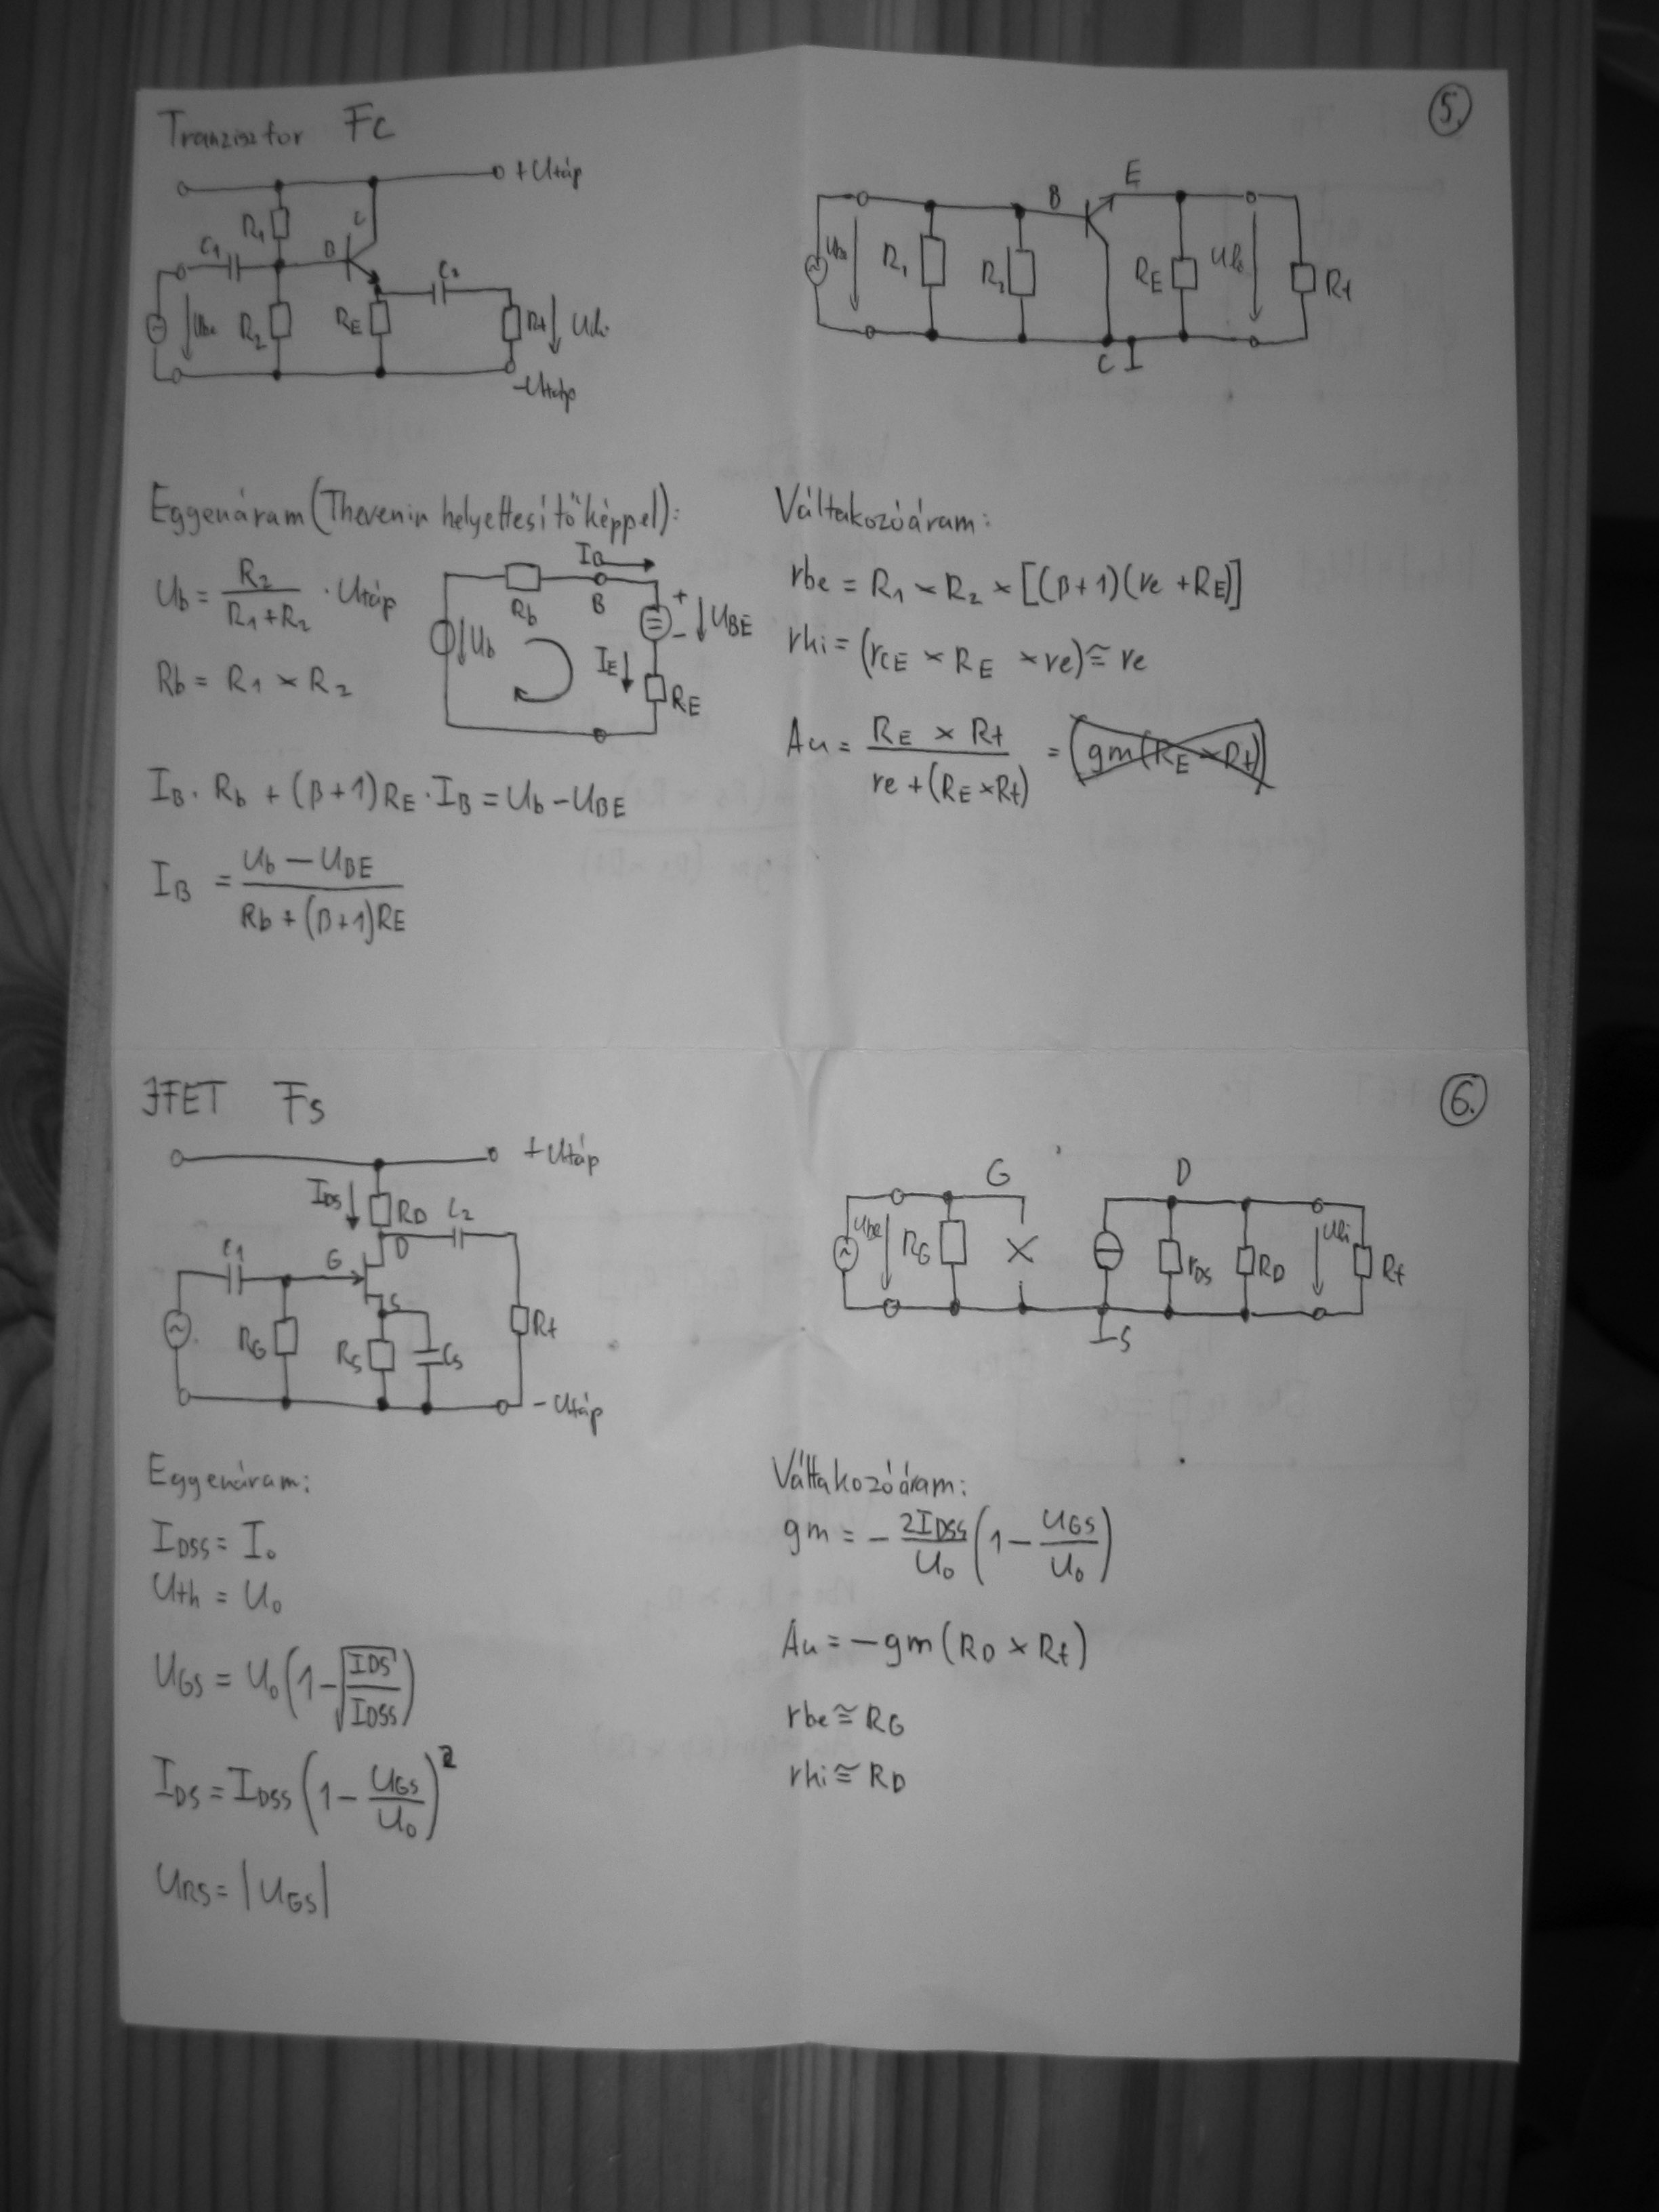 5.
Tranzisztor FC
+Utáp
R1
C
C1
B
C2
Ube
R2
RE
Rt
Uki
-Utáp
B
E
Ube
R1
R2
RE
Uki
Rt
C
Eggenáram (Thevenin helyettesítőképpel):
Ub = R2 / (R1+R2) · Utáp
Rb = R1 × R2
IB
Rb
B
+
-
UBE
Ub
IE
RE
IB · Rb + (β+1)RE · IB = Ub - UBE
IB = (Ub - UBE) / (Rb + (β+1)RE)
Váltakozóáram:
rbe = R1 × R2 × [(β+1)(re + RE)]
rki = (rCE × RE × re) ≅ re
Au = (RE × Rt) / (re + (RE × Rt)) = (gm(RE × Rt))
6.
JFET FS
+Utáp
IDS
RD
C2
D
C1
G
S
RG
RS
CS
Rt
-Utáp
G
D
Ube
RG
rDS
RD
Uki
Rt
S
Eggenáram:
IDSS = I0
Uth = U0
UGS = U0 (1 - √(IDS / IDSS))
IDS = IDSS (1 - UGS / U0)²
URS = |UGS|
Váltakozóáram:
gm = - 2IDSS / U0 (1 - UGS / U0)
Au = -gm (RD × Rt)
rbe ≅ RG
rki ≅ RD